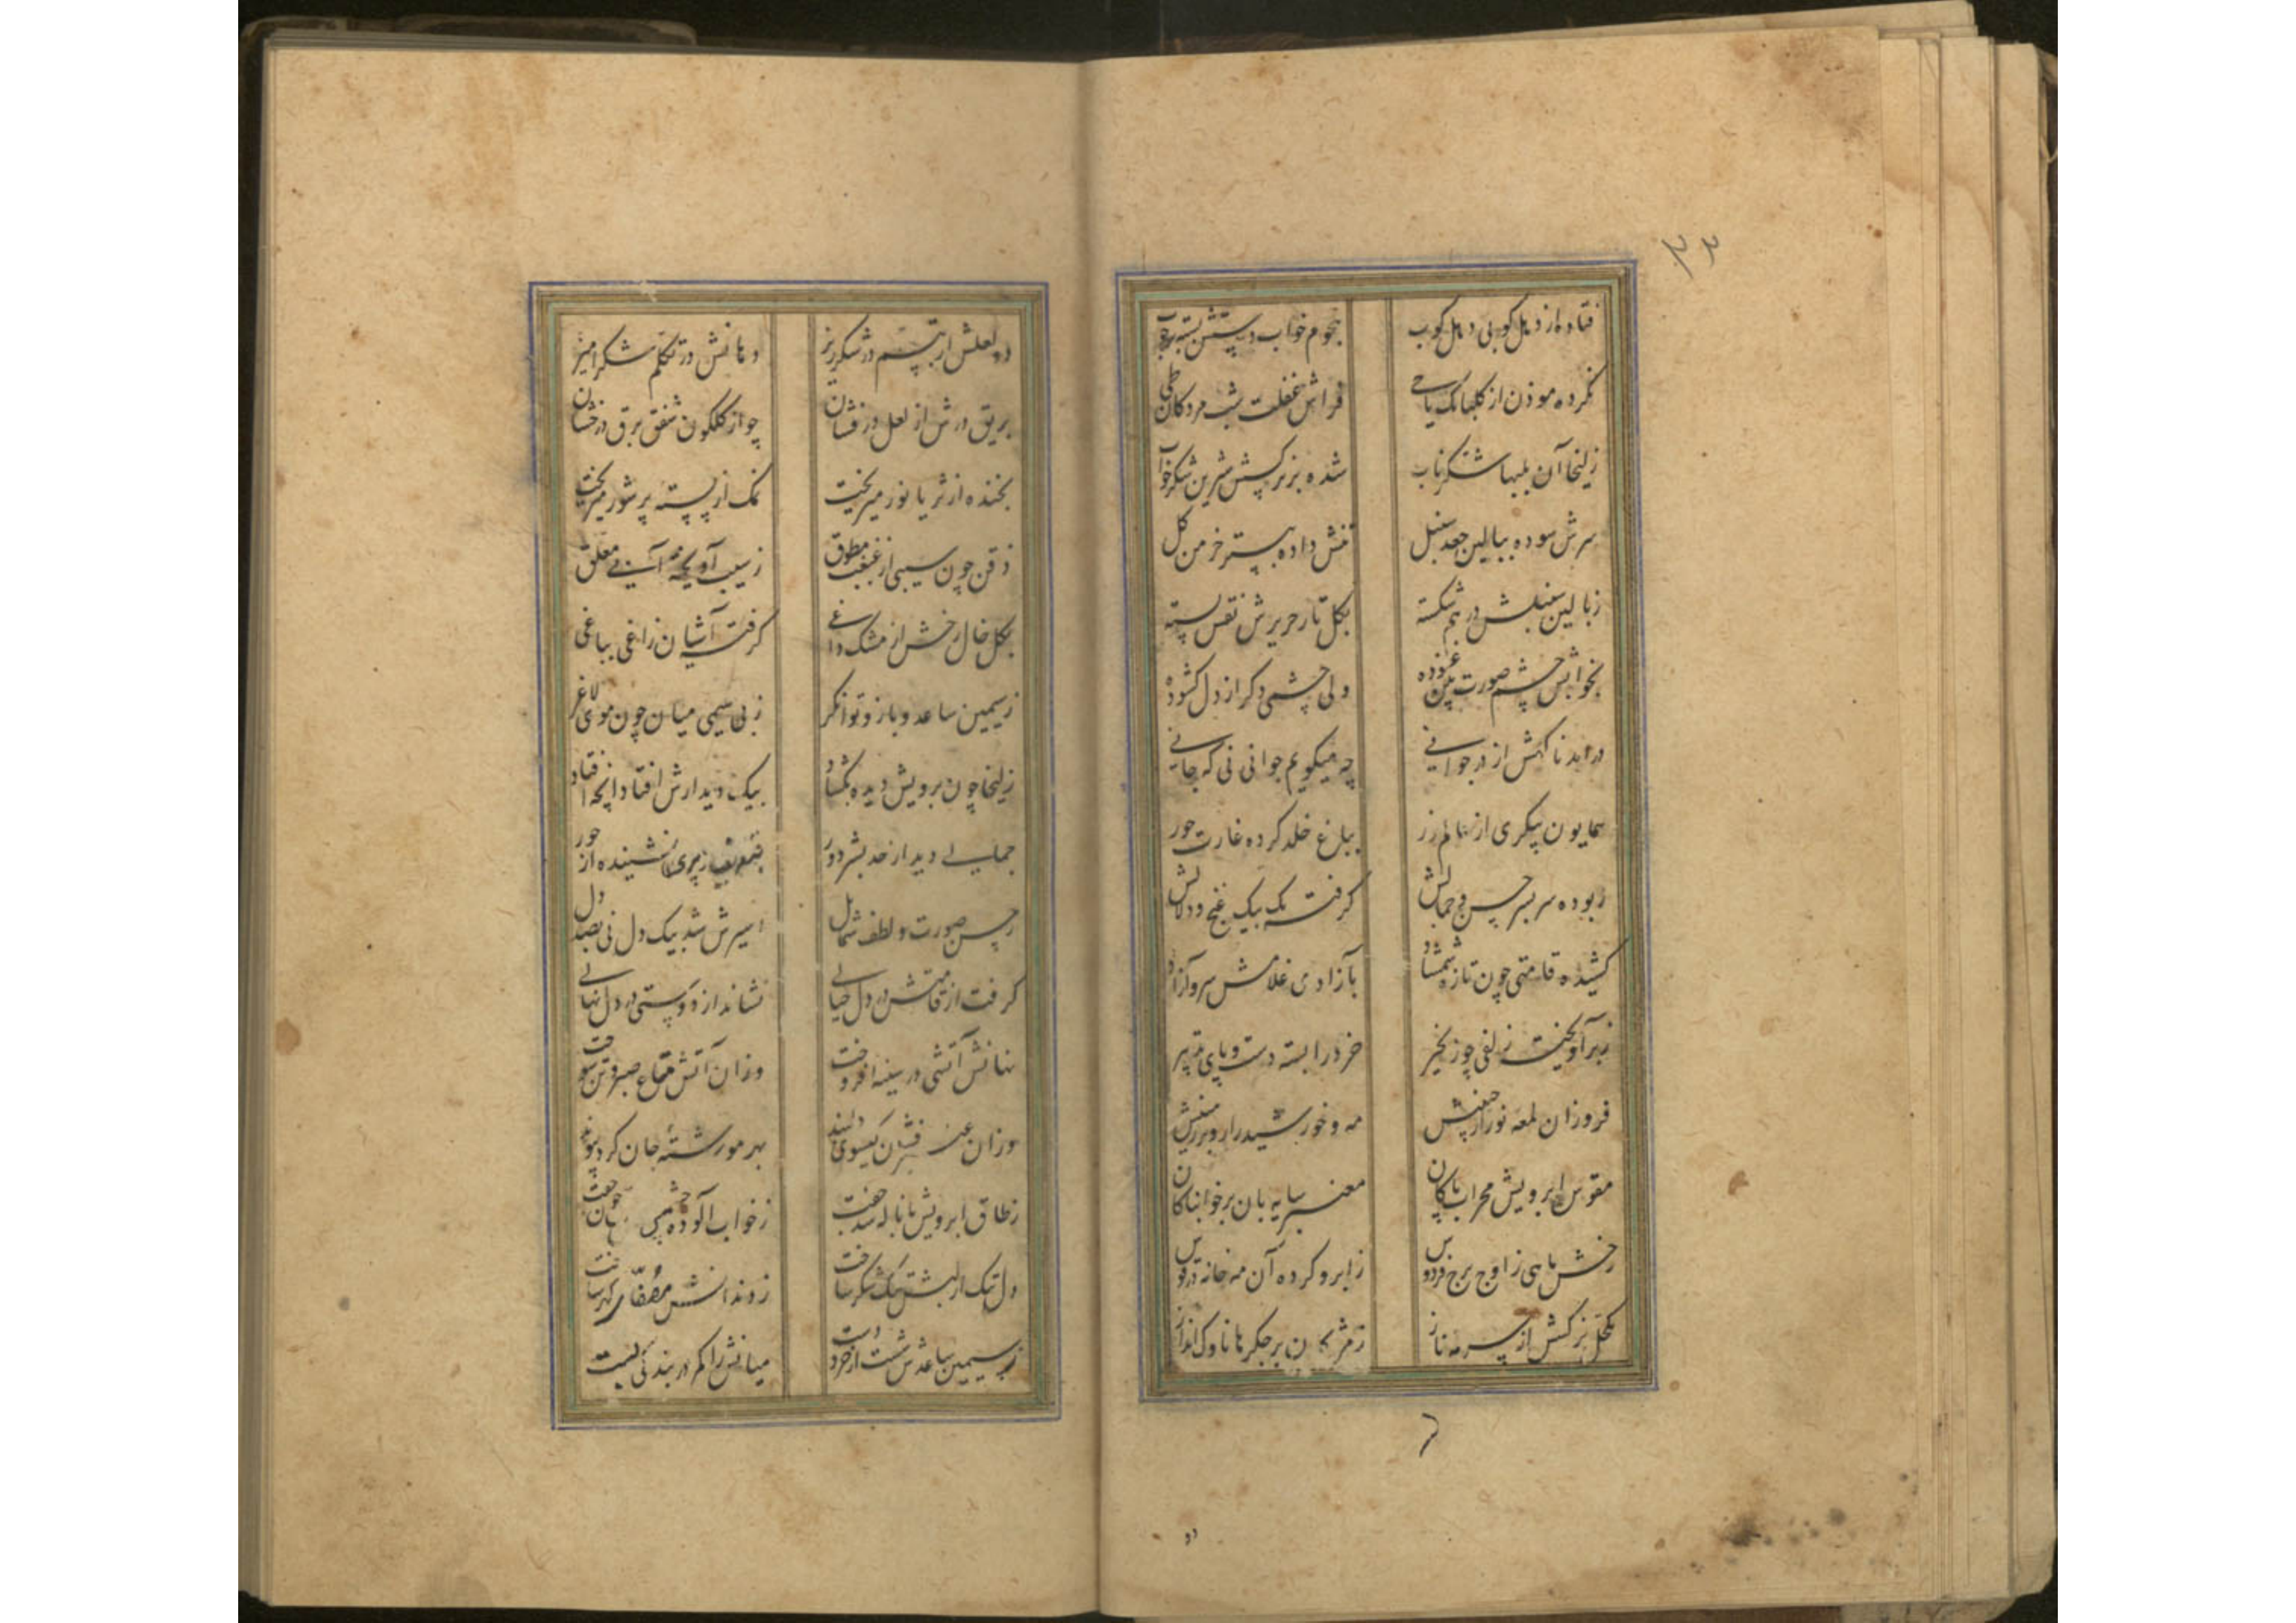 ۳۳
فتاده از دهل کوبی دهل کوب هجوم خواب دستش بسته بر چوب
نکرده موذن از گلبانگ یا حی فراش غفلت شب مردکان طی
زلیخا آن بلبها شکر ناب شده بر نرکسش شیرین شکر خواب
سرش سوده ببالین جعد سنبل تنش داده ببستر خرمن کل
ز بالین سنبلش در هم شکسته بکل تار حریرش نقش بسته
بخوابش چشم صورت بین غنوده ولی چشمی دکر از دل کشوده
درامد ناکهش از در جوانی چه میکویم جوانی نی که جانی
همایون پیکری از عالم نور بباغ خلد کرده غارت حور
ربوده سر بسر حسن و جمالش کرفته یک بیک غنج و دلالش
کشیده قامتی چون تازه شمشاد بآزادی غلامش سرو آزاد
ز سر آویخته زلفی چو زنجیر خرد را بسته دست و پای تدبیر
فروزان لمعه نور از جبینش مه و خورشید را رو بر زمینش
مقوس ابرویش محراب پاکان معنبر سایه بان بر خوابناکان
رخش ماهی ز اوج برج فردوس ز ابرو کرده آن مه خانه در قوس
مکحل نرکسش از سرمه ناز ز مژکان بر جکرها ناوک انداز
دو
دو لعلش از تبسم در شکر ریز دهانش در تکلم شکر آمیز
بریق درش از لعل در فشان چو از کلکون شفق برق درخشان
بخنده از ثریا نور میریخت نمک از پسته پر شور میریخت
ذقن چون سیبی از غبغب مطوق ز سیب آویخته آبی معلق
بکل خال رخش از مشک داغی کرفته آشیان زاغی بباغی
ز سیمین ساعد و بازو توانکر ز بی سیمی میان چون موی لاغر
زلیخا چون برویش دیده بکشاد بیک دیدارش افتاد انچه افتاد
جمالی دید از حد بشر دور ز پری نشنیده از حور
ز حسن صورت و لطف شمایل اسیرش شد بیک دل نی بصد دل
کرفت از قامتش در دل خیالی نشاند از دوستی در دل نهالی
نهانش آتشی در سینه افروخت وزان آتش متاع صبر و تن سوخت
وزان عنبر فشان کیسوی دلبند بهر مو رشته جان کرد پیوند
ز طاق ابرویش با ناله شد جفت ز خواب آلوده چشمش خفت
دل تنک از لبش تنک شکر ساخت ز دندانش مصفا کهر ساخت
ز سیمین ساعدش شست از خرد دست میانش را کمر در بندکی بست